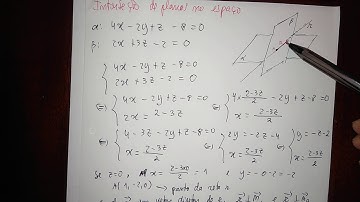 Interseção de planos no espaço
α: 4x - 2y + z - 8 = 0
β: 2x + 3z - 2 = 0
β
r
α
{ 4x - 2y + z - 8 = 0
2x + 3z - 2 = 0
(=) { 4x - 2y + z - 8 = 0
2x = 2 - 3z
(=) { 4 × \frac{2-3z}{2} - 2y + z - 8 = 0
x = \frac{2-3z}{2}
(=) { 4 - 3z - 2y + z - 8 = 0
x = \frac{2-3z}{2}
(=) { 2y = -2z - 4
x = \frac{2-3z}{2}
(=) { y = -z - 2
x = \frac{2-3z}{2}
Se z=0, x = \frac{2-3×0}{2} = 1 e y = -0 - 2 = -2
A(1, -2, 0) → ponto da reta r
vetor diretor de